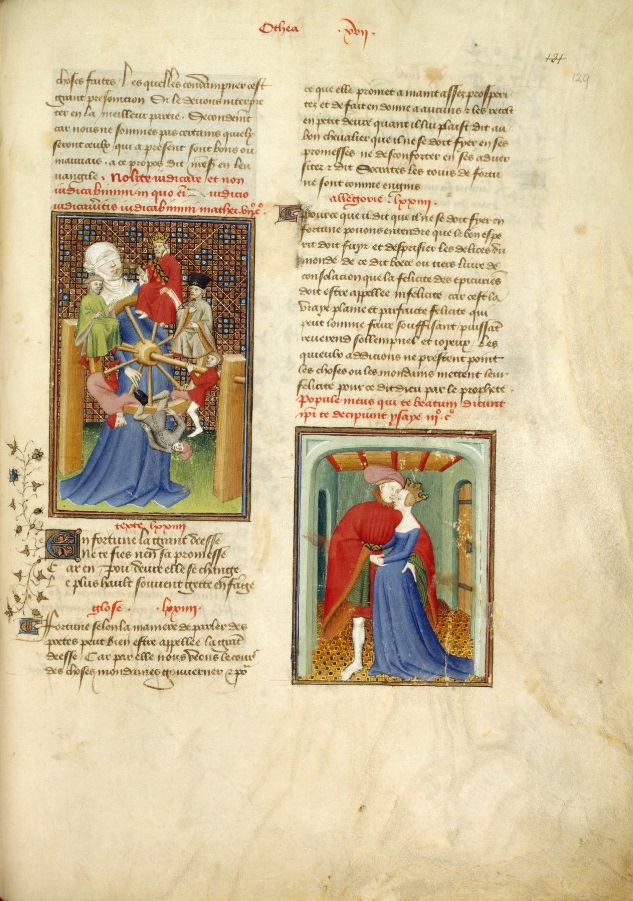 Othea .xvii.
129
choses faictes. Les quelles condampner cest
grant presomcion Si le devons interpre
ter en la meilleur partie. Secondement
car nous ne sommes pas certains quelz
seront ceulx qui a present sont bons ou
mauvais. a ce propos dit en leu
vangile. Nolite iudicare et non
iudicabimini in quo iudicio
iudicaveritis iudicabimini mathei
texte lxxiiii
En fortune la grant deesse
ne te fies nen sa promesse
Car en pou deure elle se change
Le plus hault souvent gette en fange
glose. .lxxiiii.
Fortune selon la maniere de parler des
poetes peut bien estre appellee la grant
deesse Car par elle nous veons le cours
des choses mondaines gouverner
ce que elle promet a maint assez prosperi
tez et de fait en donne a aucuns et les retolt
en petit deure quant il lui plaist dit au
bon chevalier que il ne se doit fyer en ses
promesses ne desconforter en ses adver
sitez et dit Socrates les tours de fortu
ne sont comme engins
allegorie. lxxiiii.
Pource que il dit que il ne se doit fyer en
fortune pouons entendre que le bon espe
rit doit fuyr et desprisier les delices du
monde de ce dit boece ou tiers livre de
consolacion que la felicite des epicuriens
doit estre appellee infelicite car cest la
vraye plaine et parfaicte felicite qui
peut homme faire souffisant puissant
reverend sollempnel et ioyeux. Les
quieulx addicions ne prestent point
les choses ou les mondains mettent leur
felicite pour ce dit dieu par le prophete.
Popule meus qui te beatum dicunt
ipsi te decipiunt ysaye iii.o c.o